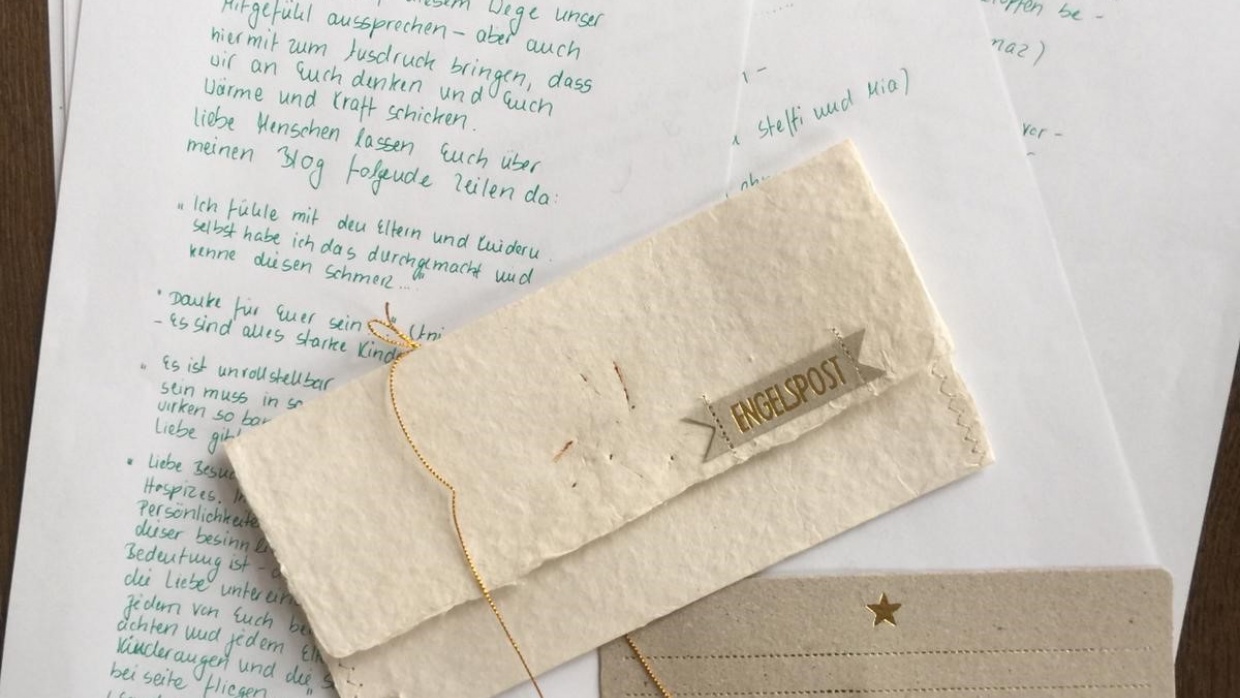 diesem Wege unser
Mitgefühl aussprechen – aber auch
hiermit zum Ausdruck bringen, dass
wir an Euch denken und Euch
Wärme und Kraft schicken.
liebe Menschen lassen Euch über
meinen Blog folgende Zeilen da:
"Ich fühle mit den Eltern und Kindern.
selbst habe ich das durchgemacht und
kenne diesen schmerz..."
"Danke für Euer sein"
- Es sind alles starke
"Es ist unvorstellbar
sein muss in
wirken so
Liebe
• liebe
Hospizes.
Persönlichkeiten
dieser
Bedeutung ist -
die Liebe
jedem von Euch
achten und jedem
Kinderaugen und die
beiseite fliegen
be-
Steffi und Mia)
vor-
ENGELSPOST